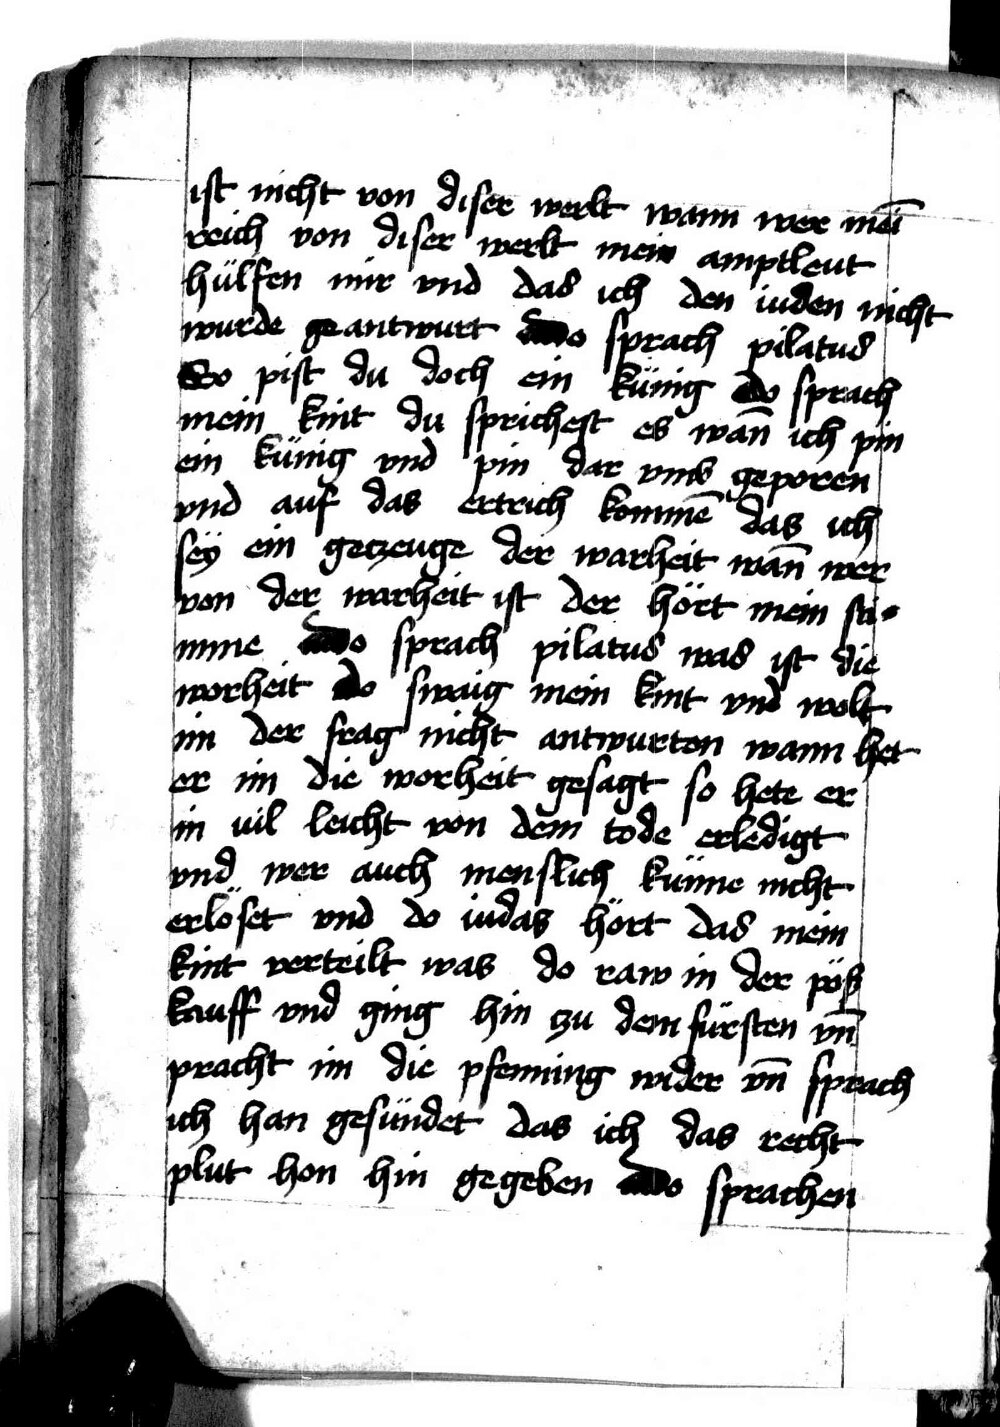 ist nicht von diser werlt wann wer mei̅
reich von diser werlt mein amptleut
hülfen mir vnd das ich den iuden nicht
wurde geantwurt do sprach pilatus
So pist du doch ein künig do sprach
mein kint du sprichest es wan̅ ich pin
ein künig vnd pin dar vmb geporen
vnd auf das ertrich komme̅ das ich
sey ein geczeuge der warheit wan̅ wer
von der warheit ist der hört mein sti-
mme do sprach pilatus was ist die
worheit do swaig mein kint vnd wolt
im der frag nicht antwurten wann het
er im die worheit gesagt so hete er
in vil leicht von dem tode erledigt
vnd wer auch menslich künne nicht
erlöset vnd do iudas hört das mein
kint verteilt was do raw in der pöß
kauff vnd ging hin czu dem fürsten vn̅
pracht im die pfenning wider vn̅ sprach
ich han gesündet das ich das recht
plut hon hin gegeben do sprachen